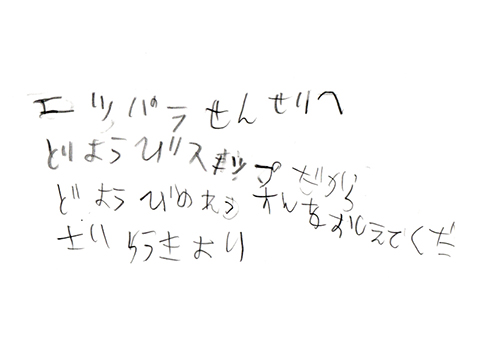 エツバラせんせいへ
どようびスキップだから
どようびのれっすんをおしえてくだ
さい ゆうきより